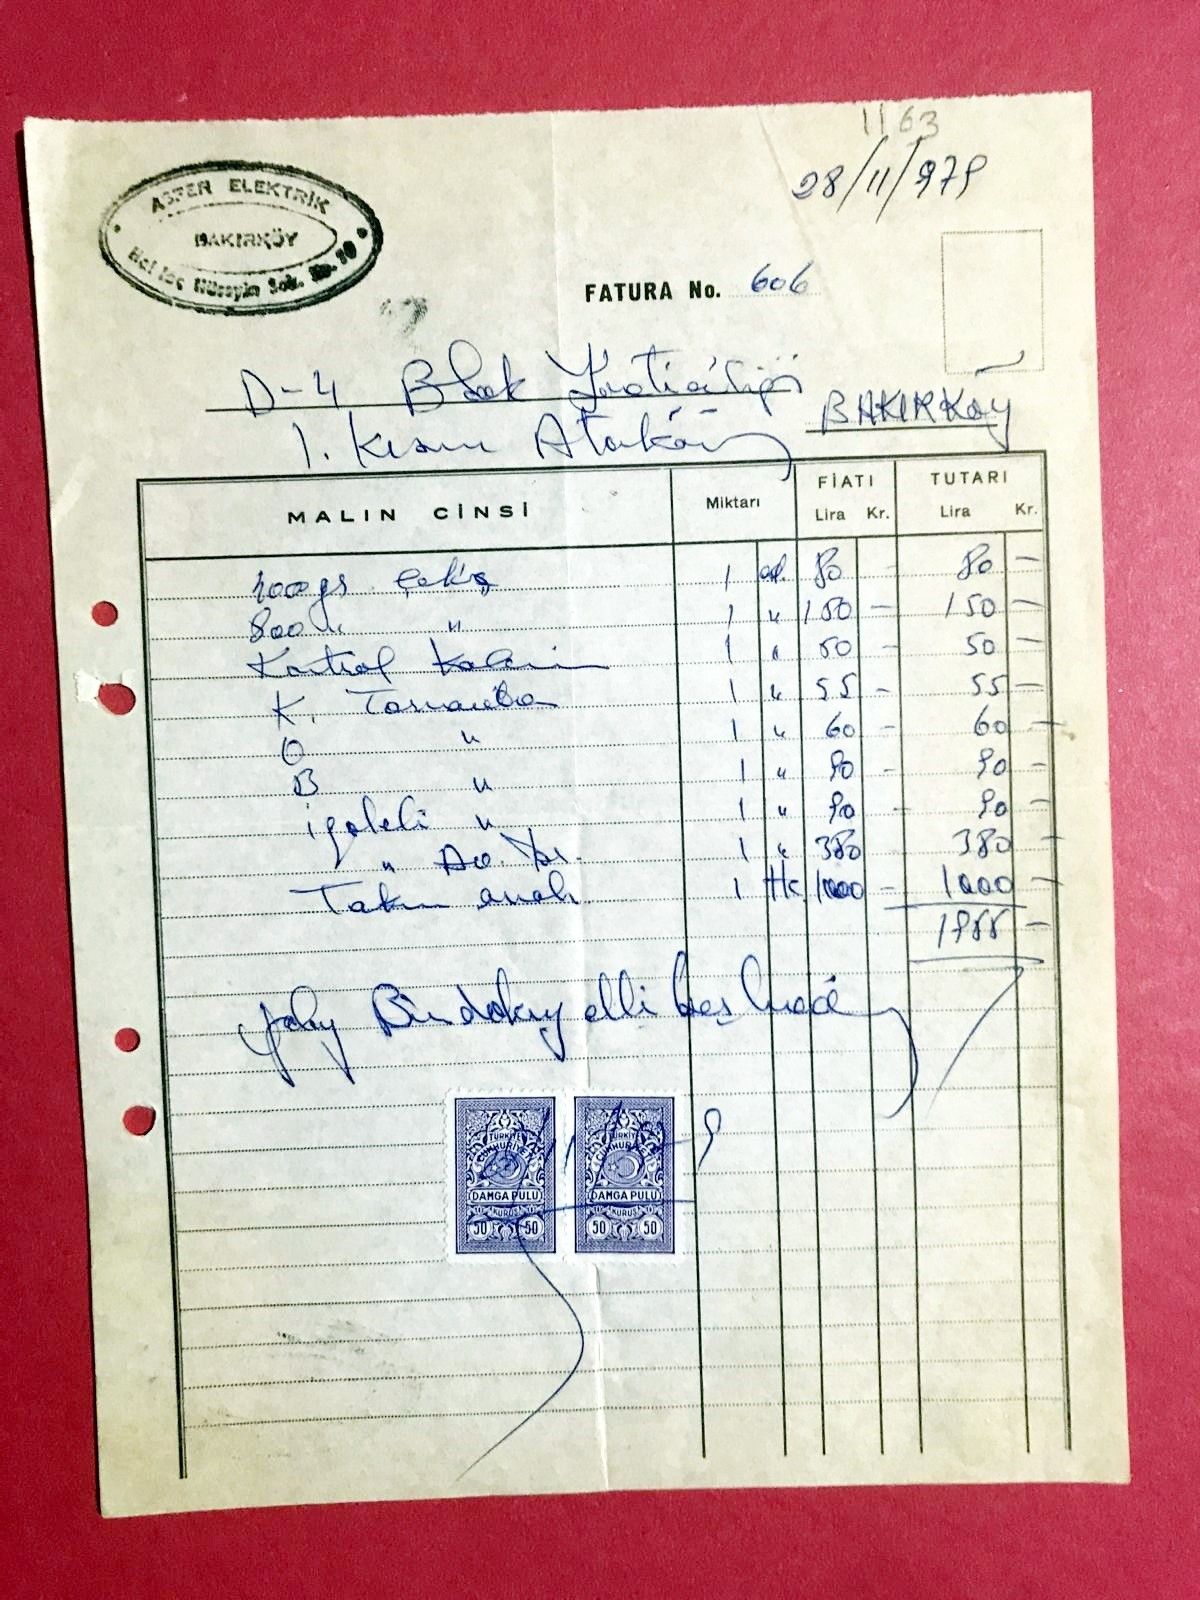 1163
28/11/979
ASFER ELEKTRİK
BAKIRKÖY
Hüseyin Sok. No. 10
FATURA No. 606
D-4 Blok Yöneticiliği
1. Kısım Ataköy BAKIRKÖY
MALIN CİNSİ Miktarı FİATI Lira Kr. TUTARI Lira Kr.
200gs Çekiç 1 ad. 80 - 80 -
800 " " 1 " 150 - 150 -
Kontrol Kalemi 1 " 50 - 50 -
K. Tornavida 1 " 55 - 55 -
O " 1 " 60 - 60 -
B " 1 " 90 - 90 -
izoleli " 1 " 90 - 90 -
" 1 " 380 380 -
Takım 1 tk 1000 - 1000 -
1955 -
Yalnız Bindokuzyüz elli beş liradır
TÜRKİYE CUMHURİYETİ TÜRKİYE CUMHURİYETİ
DAMGA PULU DAMGA PULU
KURUŞ KURUŞ
50 50 50 50